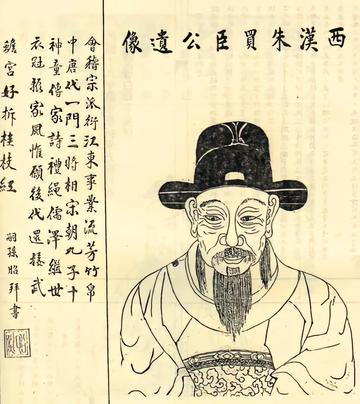 西漢朱買臣公遺像
會稽宗派衍江東事業流芳竹帛
中唐代一門三將相宗朝九子十
神童傳家詩禮繩儒澤繼世
衣冠振家風惟願後代還接武
蟾宮好折桂枝紅
嗣孫 拜書